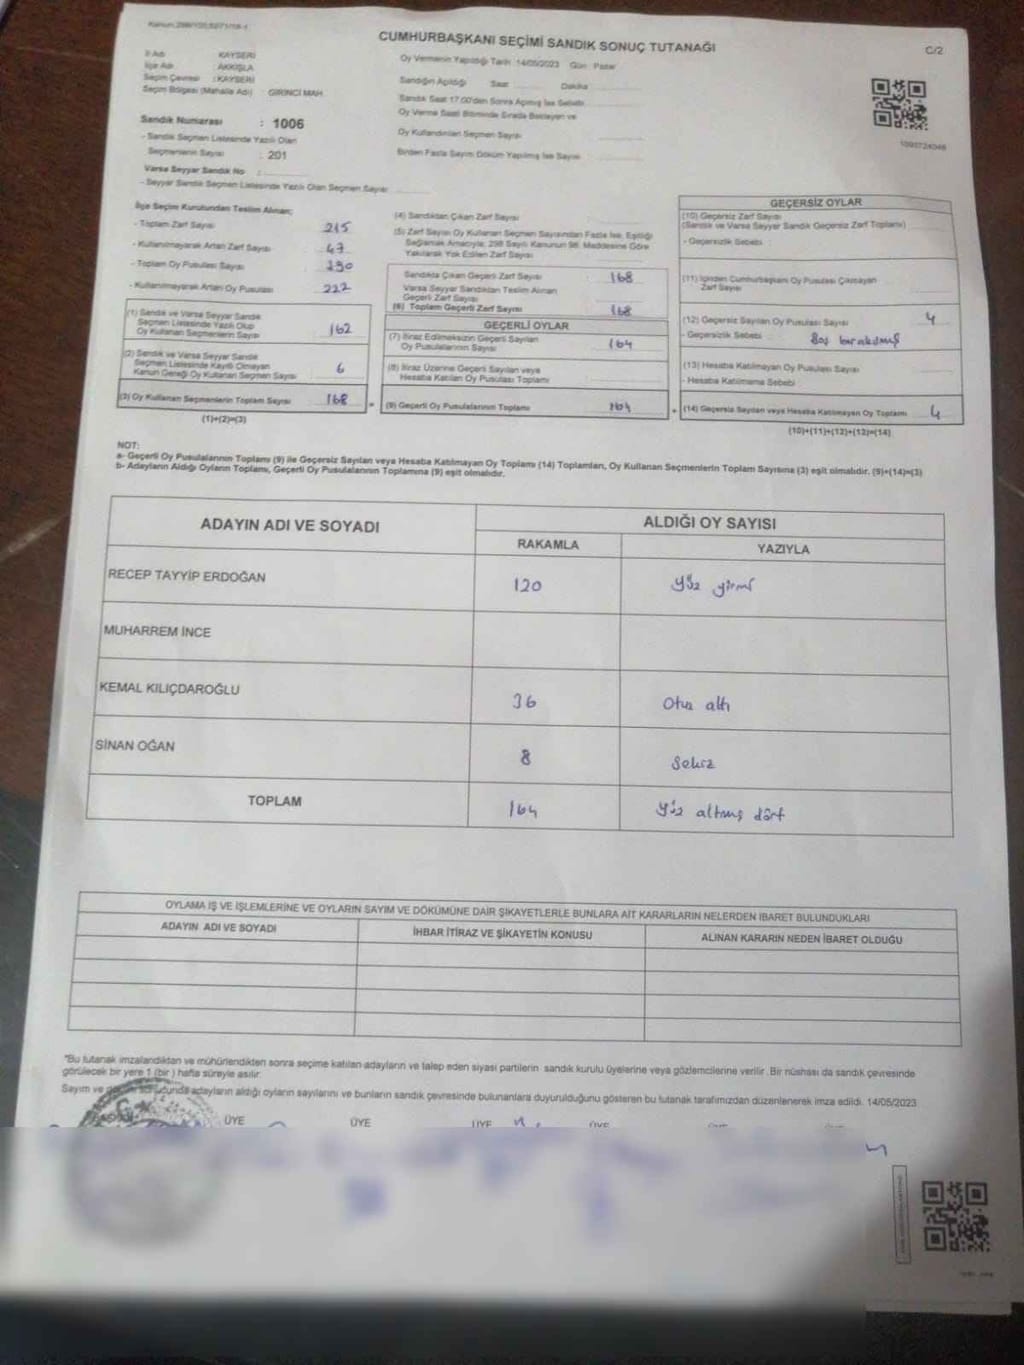 CUMHURBAŞKANI SEÇİMİ SANDIK SONUÇ TUTANAĞI
C/2
İl Adı KAYSERİ
İlçe Adı AKKIŞLA
Seçim Çevresi : KAYSERİ
Seçim Bölgesi (Mahalle Adı) : GİRİNCİ MAH.
Sandık Numarası : 1006
- Sandık Seçmen Listesinde Yazılı Olan
Seçmenlerin Sayısı : 201
Varsa Seyyar Sandık No :
- Seyyar Sandık Seçmen Listesinde Yazılı Olan Seçmen Sayısı
Oy Vermenin Yapıldığı Tarih : 14/05/2023 Gün : Pazar
Sandığın Açıldığı Saat Dakika
Sandık Saat 17.00'den Sonra Açılmış İse Sebebi
Oy Verme Saati Bitiminde Sırada Bekleyen ve
Oy Kullandırılan Seçmen Sayısı
Birden Fazla Sayım Döküm Yapılmış İse Sayısı
İlçe Seçim Kurulundan Teslim Alınan;
- Toplam Zarf Sayısı 215
- Kullanılmayarak Artan Zarf Sayısı 47
- Toplam Oy Pusulası Sayısı
- Kullanılmayarak Artan Oy Pusulası 222
(1) Sandık ve Varsa Seyyar Sandık
Seçmen Listesinde Yazılı Olup
Oy Kullanan Seçmenlerin Sayısı 162
(2) Sandık ve Varsa Seyyar Sandık
Seçmen Listesinde Kayıtlı Olmayan
Kanun Gereği Oy Kullanan Seçmen Sayısı 6
(3) Oy Kullanan Seçmenlerin Toplam Sayısı 168
(1)+(2)=(3)
(4) Sandıktan Çıkan Zarf Sayısı
(5) Zarf Sayısı Oy Kullanan Seçmen Sayısından Fazla İse, Eşitliği
Sağlamak Amacıyla, 298 Sayılı Kanunun 98. Maddesine Göre
Yakılarak Yok Edilen Zarf Sayısı
Sandıkta Çıkan Geçerli Zarf Sayısı 168
Varsa Seyyar Sandıktan Teslim Alınan
Geçerli Zarf Sayısı
(6) Toplam Geçerli Zarf Sayısı 168
GEÇERLİ OYLAR
(7) İtiraz Edilmeksizin Geçerli Sayılan
Oy Pusulalarının Sayısı 164
(8) İtiraz Üzerine Geçerli Sayılan veya
Hesaba Katılan Oy Pusulası Toplamı
(9) Geçerli Oy Pusulalarının Toplamı 164
GEÇERSİZ OYLAR
(10) Geçersiz Zarf Sayısı
(Sandık ve Varsa Seyyar Sandık Geçersiz Zarf Toplamı)
- Geçersizlik Sebebi :
(11) İçinden Cumhurbaşkanı Oy Pusulası Çıkmayan
Zarf Sayısı
(12) Geçersiz Sayılan Oy Pusulası Sayısı 4
- Geçersizlik Sebebi : Boş bırakılmış
(13) Hesaba Katılmayan Oy Pusulası Sayısı
- Hesaba Katılmama Sebebi
(14) Geçersiz Sayılan veya Hesaba Katılmayan Oy Toplamı 4
(10)+(11)+(12)+(13)=(14)
NOT:
a- Geçerli Oy Pusulalarının Toplamı (9) ile Geçersiz Sayılan veya Hesaba Katılmayan Oy Toplamı (14) Toplamları, Oy Kullanan Seçmenlerin Toplam Sayısına (3) eşit olmalıdır. (9)+(14)=(3)
b- Adayların Aldığı Oyların Toplamı, Geçerli Oy Pusulalarının Toplamına (9) eşit olmalıdır.
ADAYIN ADI VE SOYADI ALDIĞI OY SAYISI
RAKAMLA YAZIYLA
RECEP TAYYİP ERDOĞAN 120 Yüz yirmi
MUHARREM İNCE
KEMAL KILIÇDAROĞLU 36 Otuz altı
SİNAN OĞAN 8 Sekiz
TOPLAM 164 Yüz altmış dört
OYLAMA İŞ VE İŞLEMLERİNE VE OYLARIN SAYIM VE DÖKÜMÜNE DAİR ŞİKAYETLERLE BUNLARA AİT KARARLARIN NELERDEN İBARET BULUNDUKLARI
ADAYIN ADI VE SOYADI İHBAR İTİRAZ VE ŞİKAYETİN KONUSU ALINAN KARARIN NEDEN İBARET OLDUĞU
"Bu tutanak imzalandıktan ve mühürlendikten sonra seçime katılan adayların ve talep eden siyasi partilerin sandık kurulu üyelerine veya gözlemcilerine verilir. Bir nüshası da sandık çevresinde
görülecek bir yere 1 (bir) hafta süreyle asılır.
Sayım ve adayların aldığı oyların sayılarını ve bunların sandık çevresinde bulunanlara duyurulduğunu gösteren bu tutanak tarafımızdan düzenlenerek imza edildi. 14/05/2023
ÜYE ÜYE ÜYE ÜYE